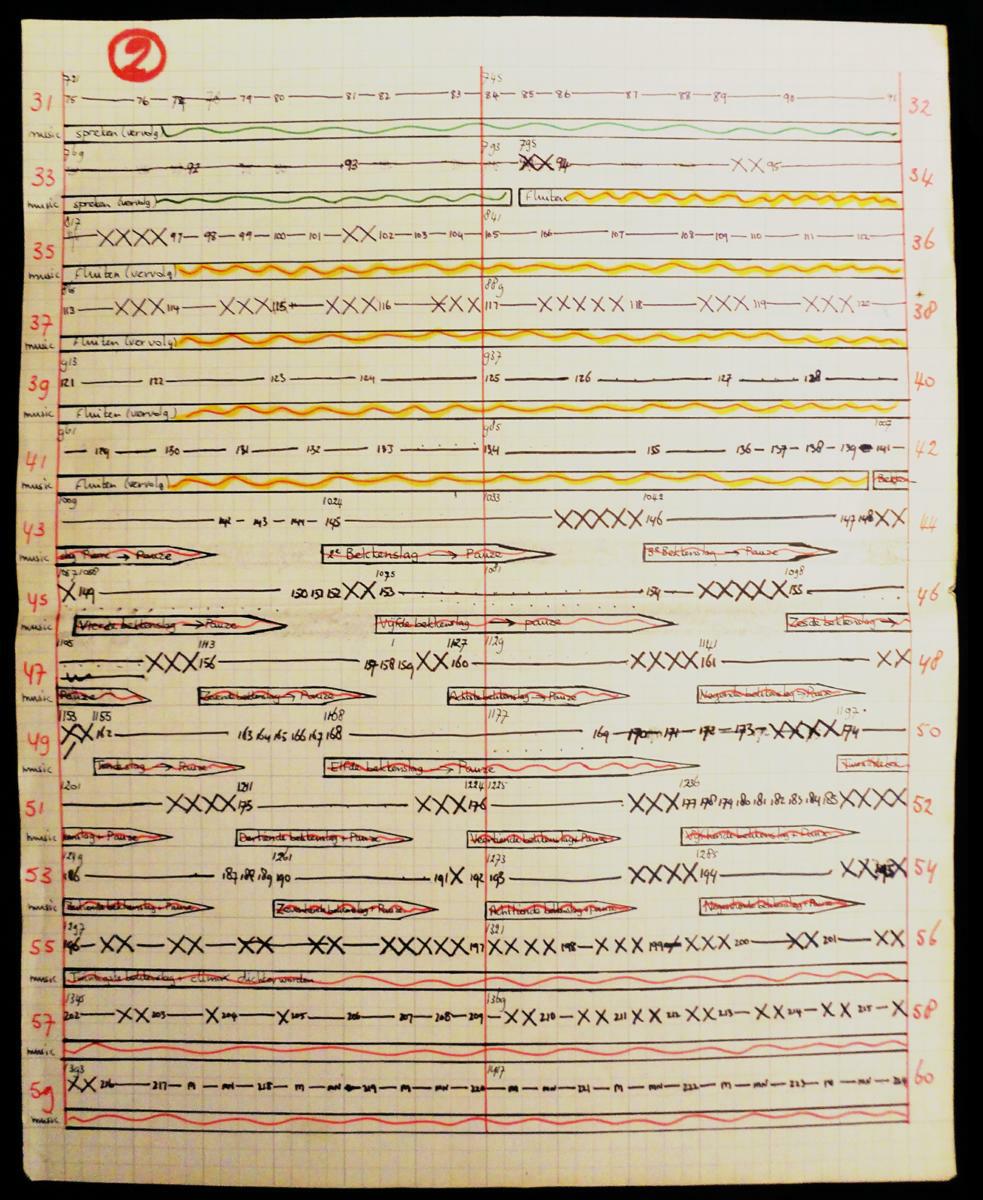 2
721 745
31 75 76 78 79 80 81 82 83 84 85 86 87 88 89 90 91 32
music spreken (vervolg)
769 793 795
33 92 93 XX 94 XX 95 34
music spreken (vervolg) Fluiten
817 841
35 XXXX 97 98 99 100 101 XX 102 103 104 105 106 107 108 109 110 111 112 36
music Fluiten (vervolg)
889
37 113 XXX 114 XXX 115 XXX 116 XXX 117 XXXXX 118 XXX 119 XXX 120 38
music Fluiten (vervolg)
913 937
39 121 122 123 124 125 126 127 128 40
music Fluiten (vervolg)
961 985 1007
41 129 130 131 132 133 134 135 136 137 138 139 141 42
music Fluiten (vervolg) Bekken
1009 1024 1033 1042
43 142 143 144 145 XXXXX 146 147 148 XX 44
music slag Pauze → Pauze 2e Bekkenslag → Pauze 3e Bekkenslag → Pauze
1057 1058 1075 1081 1098
45 X 149 150 151 152 XX 153 154 XXXXX 155 46
music Vierde bekkenslag → Pauze Vijfde bekkenslag → pauze Zesde bekkenslag →
1105 1113 1127 1129 1141
47 XXX 156 157 158 159 XX 160 XXXX 161 XX 48
music Pauze Zevende bekkenslag → Pauze Achtste bekkenslag → Pauze Negende bekkenslag → Pauze
1153 1155 1168 1177 1197
49 XX 162 163 164 165 166 167 168 169 170 171 172 173 XXXX 174 50
music Tiende slag → Pauze Elfde bekkenslag → Pauze
1201 1211 1224 1225 1236
51 XXXX 175 XXX 176 XXX 177 178 179 180 181 182 183 184 185 XXXX 52
music kenslag + Pauze Dertiende bekkenslag + Pauze Veertiende bekkenslag + Pauze Vijftiende bekkenslag + Pauze
1249 1261 1273 1285
53 186 187 188 189 190 191 X 192 193 XXXX 194 XX 195 X 54
music Zestiende bekkenslag + Pauze Zeventiende bekkenslag + Pauze Achttiende bekkenslag + pauze Negentiende bekkenslag + Pauze
1297 1321
55 196 XX XX XX XX XXXXX 197 XXXX 198 XXX 199 XXX 200 XX 201 XX 56
music Twintigste bekkenslag + climax dichter worden
1345 1369
57 202 XX 203 X 204 X 205 206 207 208 209 XX 210 XX 211 XX 212 XX 213 XX 214 XX 215 X 58
music
1393 1417
59 XX 216 217 M MN 218 M MN 219 M MN 220 M MN 221 M MN 222 M MN 223 M MN 224 60
music